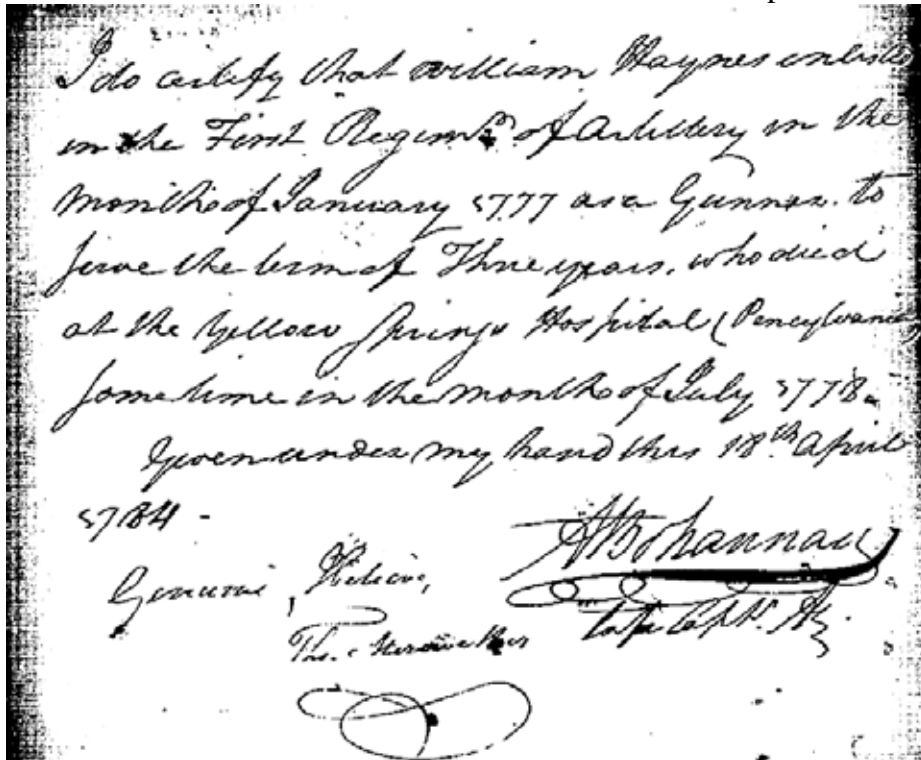 I do certify that William Haynes enlisted
in the First Regimt. of Artillery in the
month of January 1777 as a Gunner. to
serve the term of Three years. who died
at the Yellow Springs Hospital (Pencylvania
sometime in the month of July 1778.
Given under my hand this 18th April
1784 -
ABohannan
Genuine, I believe,
late Capt. Ar
Ths. Meriwether